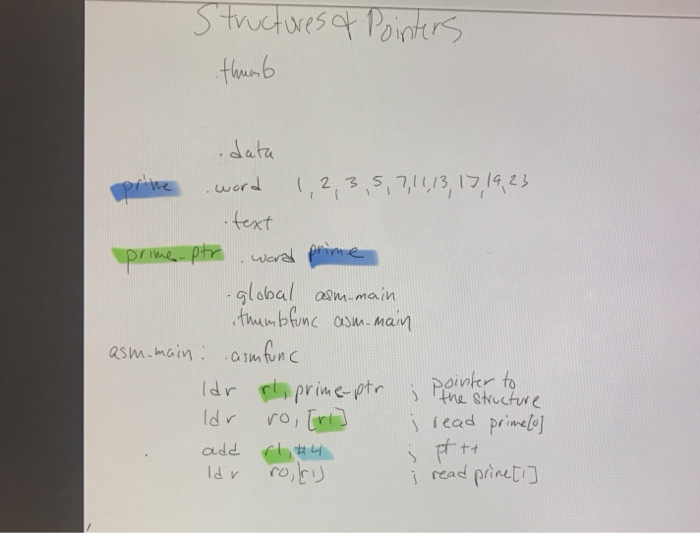 Structures & Pointers
.thumb
.data
prime .word 1, 2, 3, 5, 7, 11, 13, 17, 19, 23
.text
prime-ptr .word prime
.global asm-main
.thumbfunc asm-main
asm-main: .asmfunc
ldr r1, prime-ptr ; pointer to
the structure
ldr r0, [r1] ; read prime[0]
add r1, #4 ; pt ++
ldr r0, [r1] ; read prime[1]